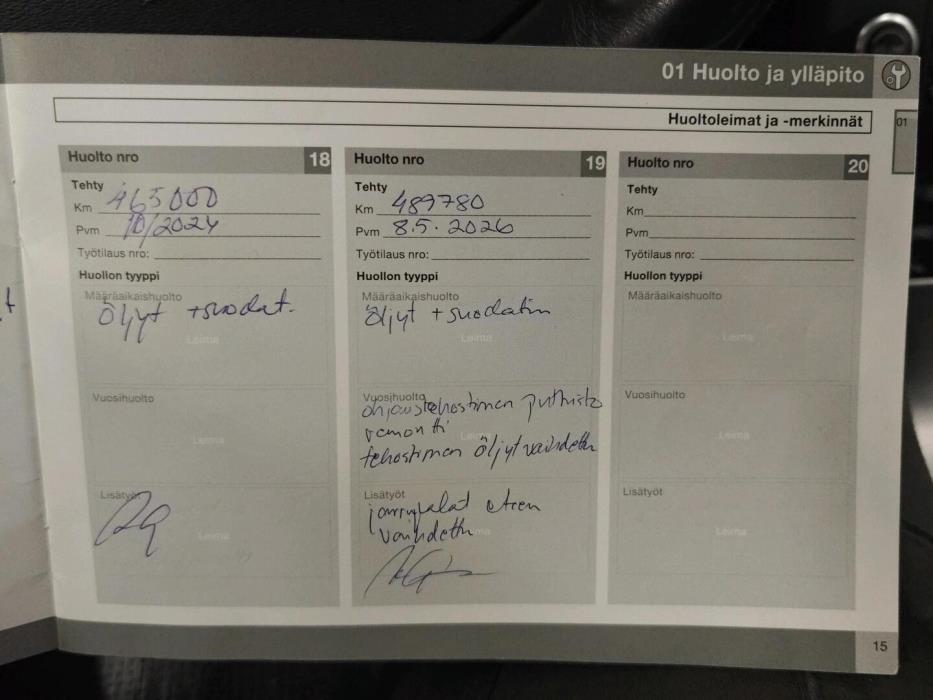 01 Huolto ja ylläpito
Huoltoleimat ja -merkinnät
01
Huolto nro 18
Tehty
Km 463000
Pvm 10/2024
Työtilaus nro:
Huollon tyyppi
Määräaikaishuolto
öljyt + suodat.
Leima
Vuosihuolto
Leima
Lisätyöt
Leima
Huolto nro 19
Tehty
Km 489780
Pvm 8.5.2026
Työtilaus nro:
Huollon tyyppi
Määräaikaishuolto
öljyt + suodatin
Leima
Vuosihuolto
ohjaustehostimen putkisto
remontti
Leima
tehostimen öljyt vaihdettu
Lisätyöt
jarrupalat eteen
vaihdettu
Leima
Huolto nro 20
Tehty
Km
Pvm
Työtilaus nro:
Huollon tyyppi
Määräaikaishuolto
Leima
Vuosihuolto
Leima
Lisätyöt
Leima
15